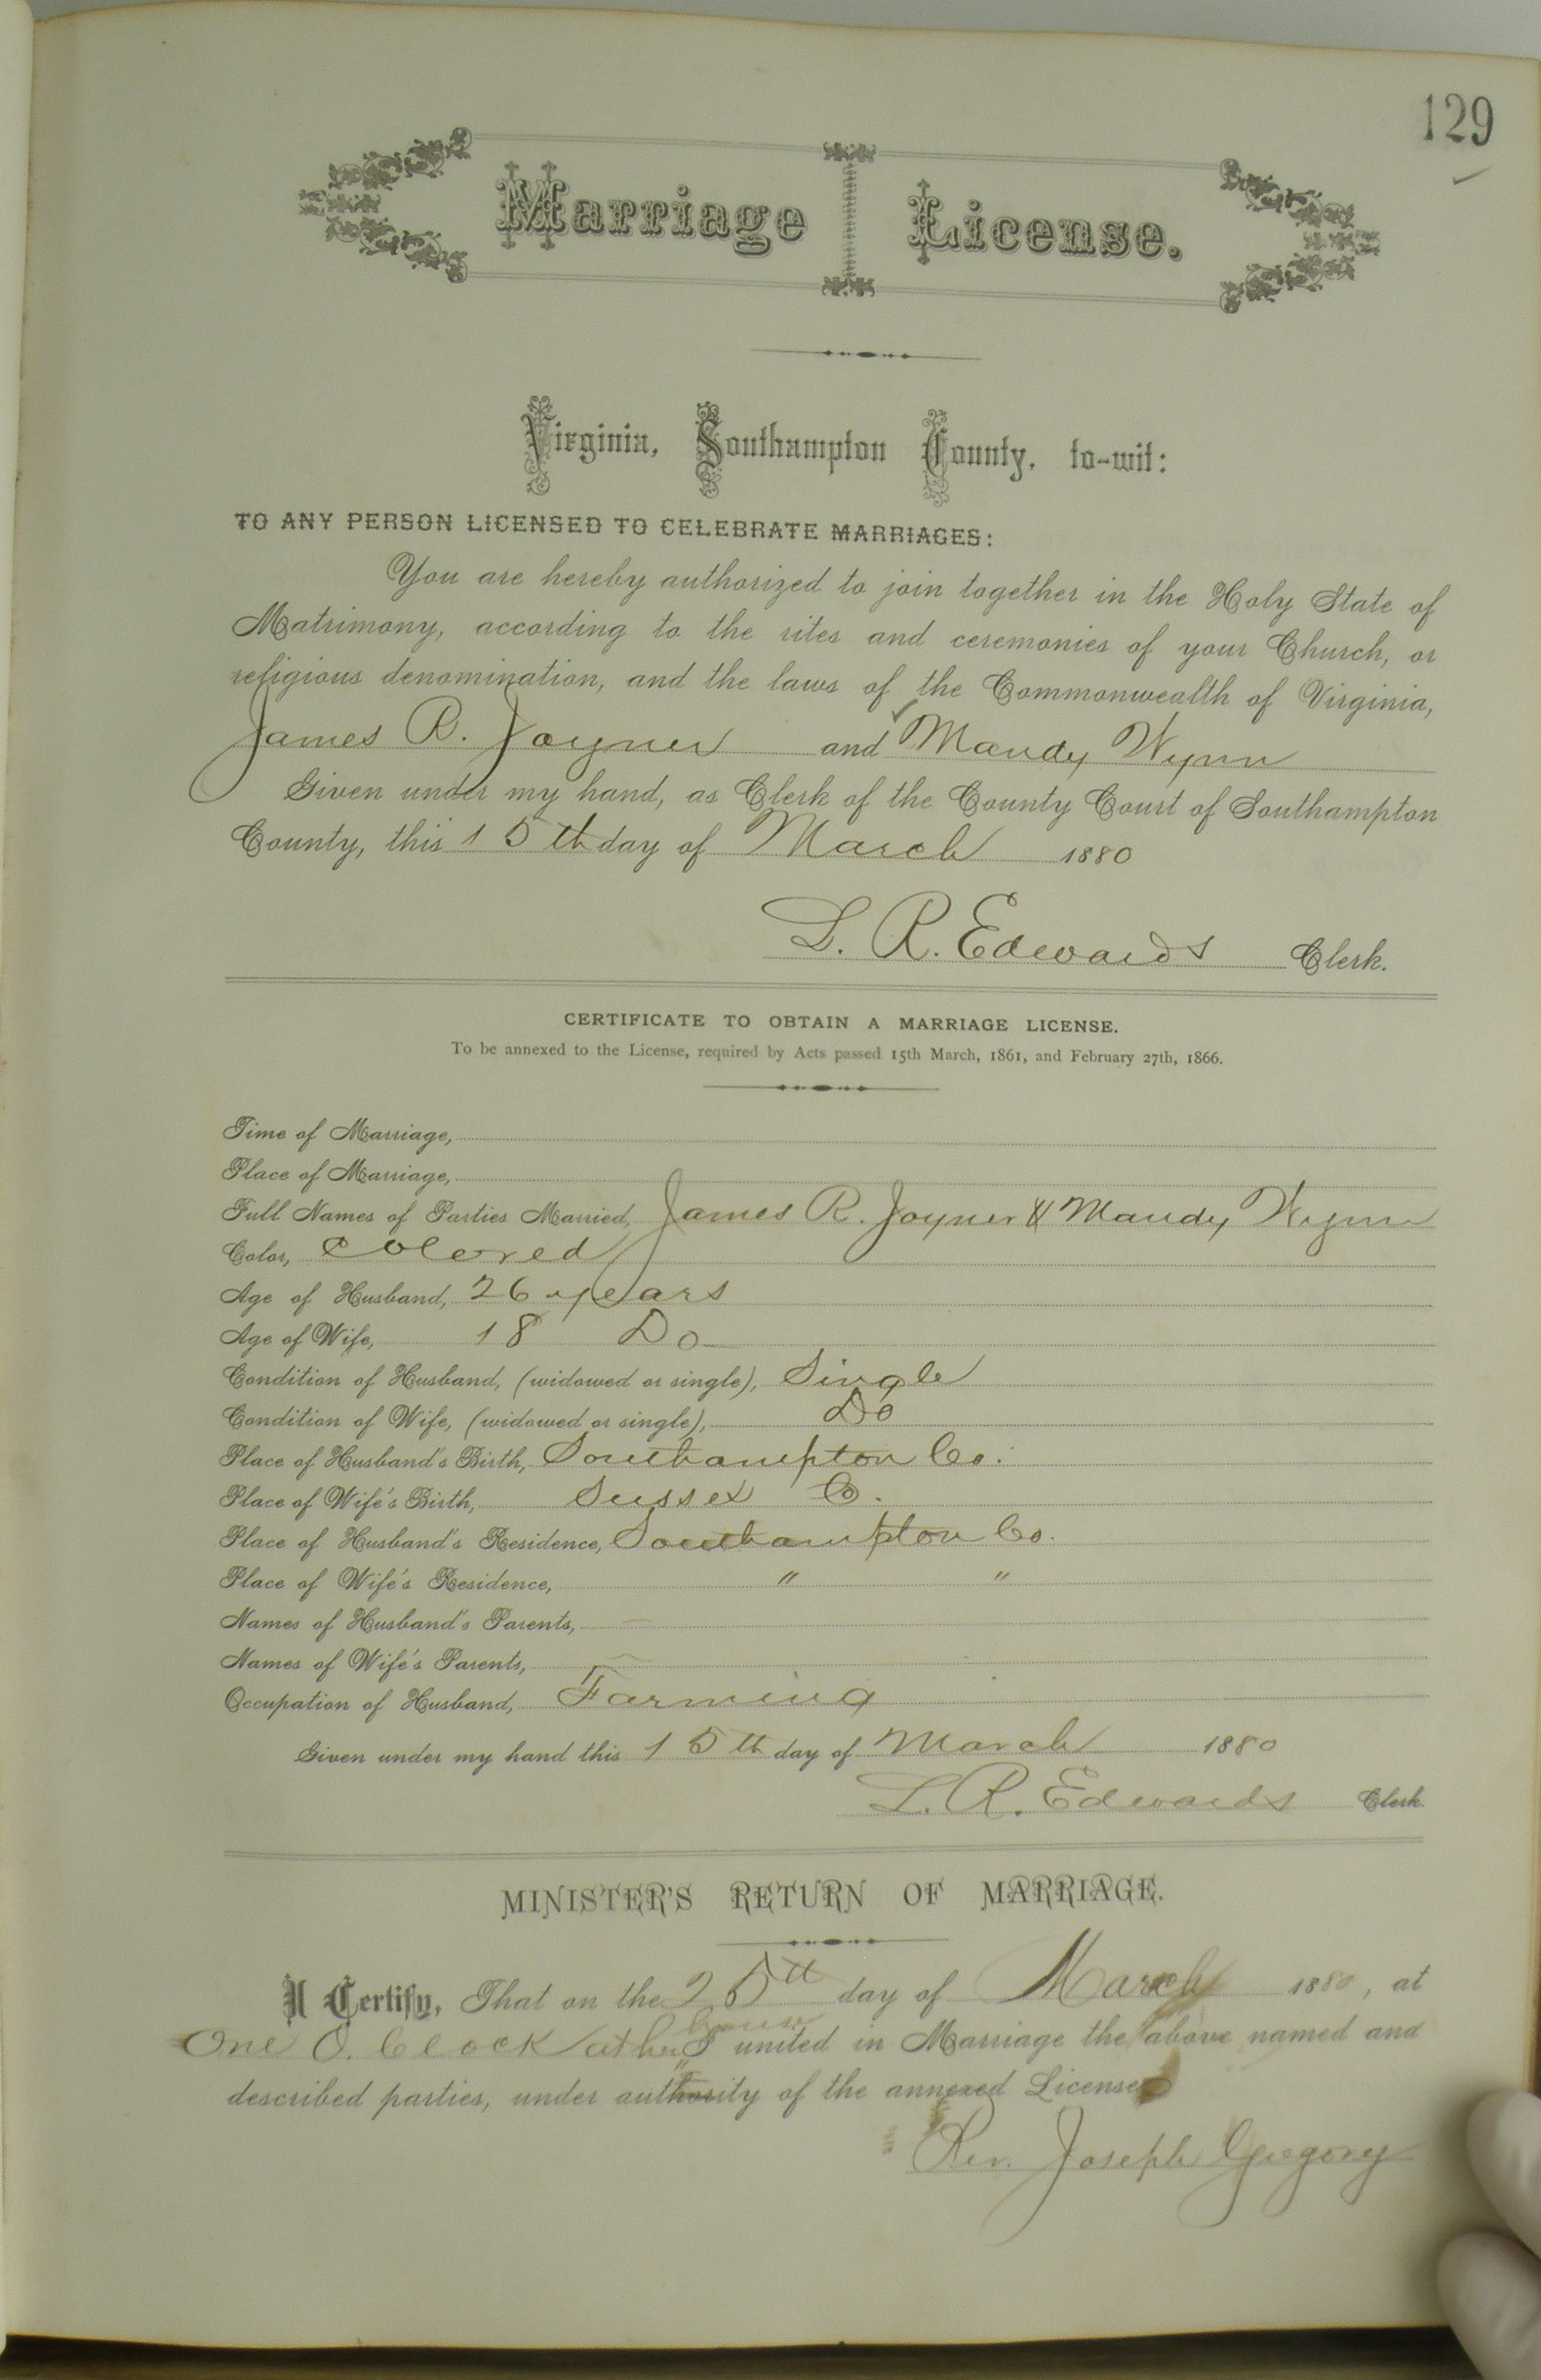 129
Marriage License.
Virginia, Southampton County, to-wit:
TO ANY PERSON LICENSED TO CELEBRATE MARRIAGES:
You are hereby authorized to join together in the Holy State of
Matrimony, according to the rites and ceremonies of your Church, or
religious denomination, and the laws of the Commonwealth of Virginia,
James R. Joyner and Mandy Wynn
Given under my hand, as Clerk of the County Court of Southampton
County, this 15th day of March 1880
L. R. Edwards Clerk.
CERTIFICATE TO OBTAIN A MARRIAGE LICENSE.
To be annexed to the License, required by Acts passed 15th March, 1861, and February 27th, 1866.
Time of Marriage,
Place of Marriage,
Full Names of Parties Married, James R. Joyner & Mandy Wynn
Color, Colored
Age of Husband, 26 years
Age of Wife, 18 Do
Condition of Husband, (widowed or single), Single
Condition of Wife, (widowed or single), Do
Place of Husband's Birth, Southampton Co.
Place of Wife's Birth, Sussex Co.
Place of Husband's Residence, Southampton Co.
Place of Wife's Residence, " "
Names of Husband's Parents, —
Names of Wife's Parents, —
Occupation of Husband, Farming
Given under my hand this 15th day of March 1880
L. R. Edwards Clerk.
MINISTER'S RETURN OF MARRIAGE.
I Certify, That on the 25th day of March 1880, at
house
One O. Clock at her I united in Marriage the above named and
described parties, under authority of the annexed License
Rev. Joseph Gregory